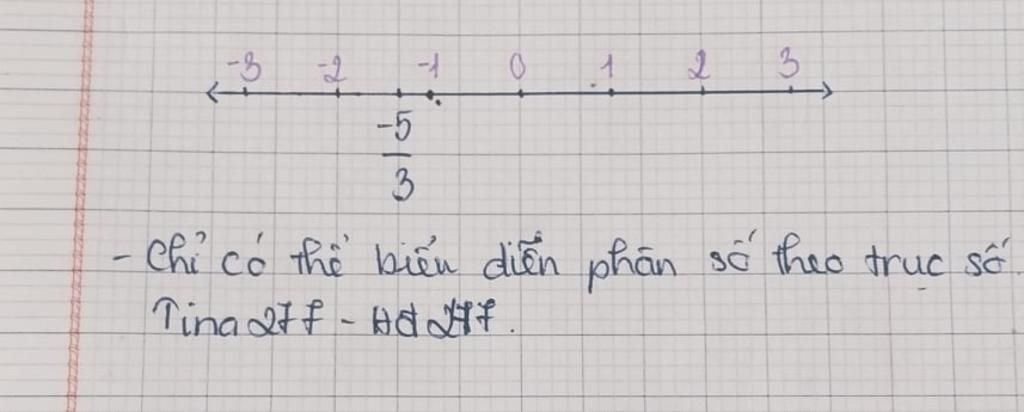 -3 -2 -1 0 1 2 3
-5
3
- Chỉ có thể biểu diễn phân số theo trục số.
Tina 27f - Hd 247f.